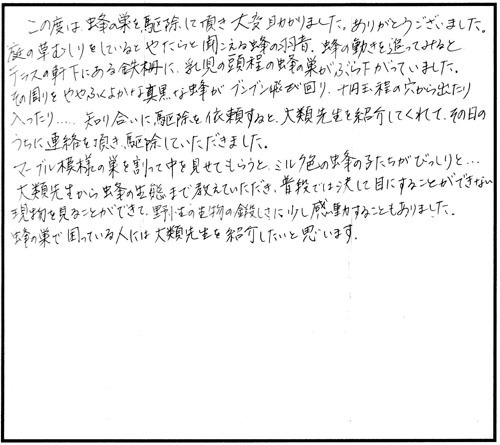 この度は、蜂の巣を駆除して頂き大変助かりました。ありがとうございました。
庭の草むしりをしているとやたらと聞こえる蜂の羽音。蜂の動きを追ってみると
テラスの軒下にある鉄柵に、乳児の頭程の蜂の巣がぶら下がっていました。
その周りをややふくよかな真黒な蜂が、ブンブン飛び回り、十円玉程の穴から出たり
入ったり..... 知り合いに駆除を依頼すると、大類先生を紹介してくれて、その日の
うちに連絡を頂き、駆除していただきました。
マーブル模様の巣を割って中を見せてもらうと、ミルク色の蜂の子たちがびっしりと...
大類先生から蜂の生態まで教えていただき、普段では決して目にすることができない
現物を見ることができて、野生の生物の厳しさに少し感動することもありました。
蜂の巣で困っている人には大類先生を紹介したいと思います。